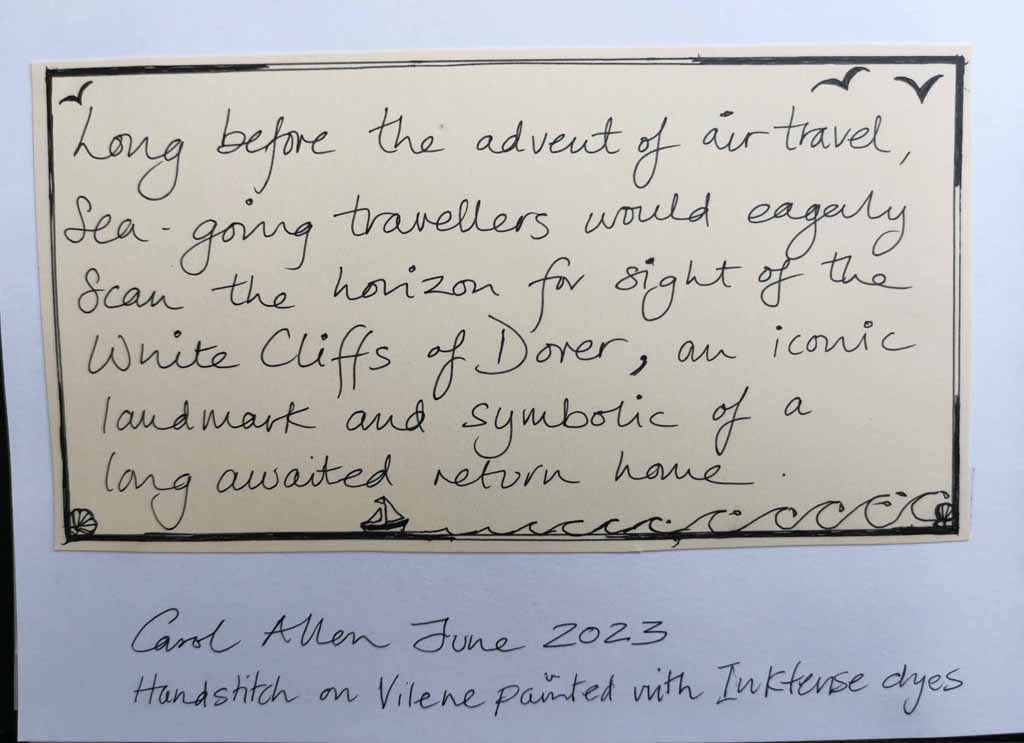 Long before the advent of air travel,
Sea-going travellers would eagerly
Scan the horizon for sight of the
White Cliffs of Dover, an iconic
landmark and symbolic of a
long awaited return home.
Carol Allen June 2023
Handstitch on Vilene painted with Inktense dyes